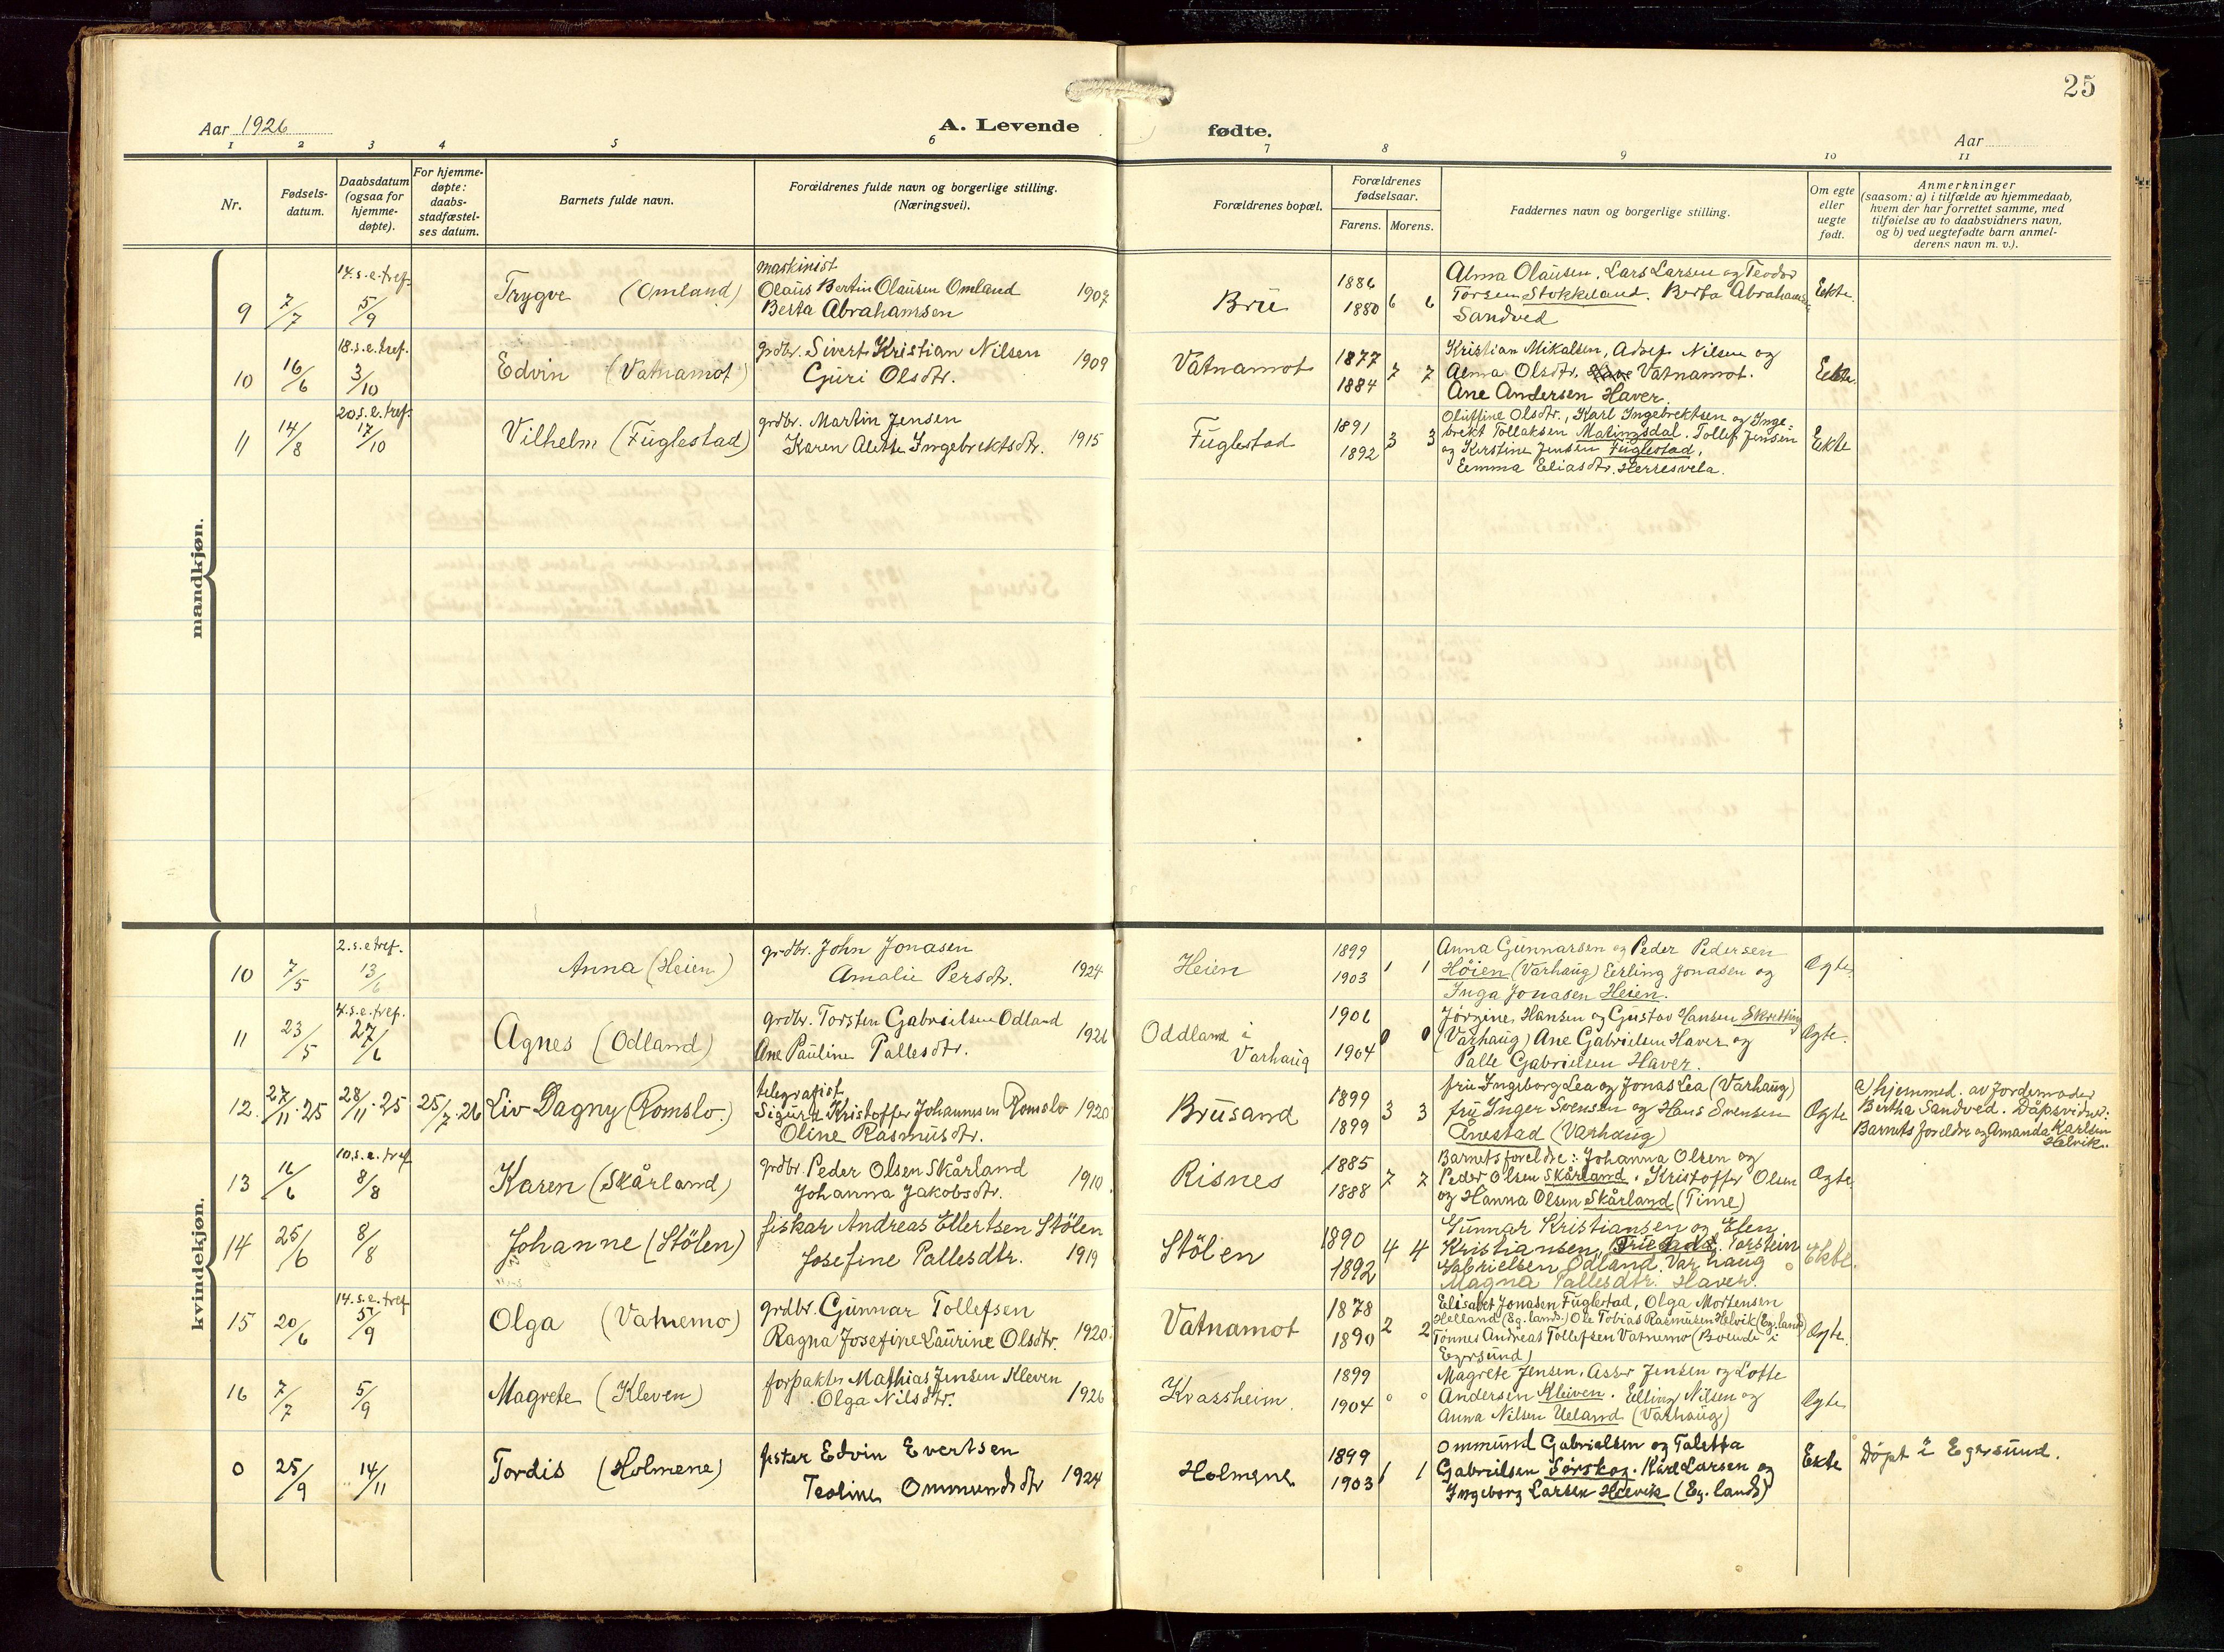 25
Aar 1926
A. Levende
fødte.
Aar
1 2 3 4 5 6 7 8 9 10 11
Nr.
Fødsels-
datum.
Daabsdatum
(ogsaa for
hjemme-
døpte).
For hjemme-
døpte:
daabs-
stadfæstel-
ses datum.
Barnets fulde navn.
Forældrenes fulde navn og borgerlige stilling.
(Næringsvei).
Forældrenes bopæl.
Forældrenes
fødselsaar.
Farens. Morens.
Faddernes navn og borgerlige stilling.
Om egte
eller
uegte
født.
Anmerkninger
(saasom: a) i tilfælde av hjemmedaab,
hvem der har forrettet samme, med
tilføielse av to daabsvidners navn,
og b) ved uegtefødte barn anmel-
derens navn m. v.).
mandkjøn.
9
7/7
14. s. e. tref.
5/9
Trygve (Omland)
maskinist
Olaus Bertin Olausen Omland
Berta Abrahamsen
1907
Brue
1886
1880
6 6
Alma Olausen, Lars Larsen og Teodor
Torsen Stokkeland. Berta Abrahams
Sandved
Eekte.
10
16/6
18. s. e. tref.
3/10
Edvin (Vatnamot)
grdbr. Sivert Kristian Nilsen
Guri Olsdtr.
1909
Vatnamot
1877
1884
7 7
Kristian Mikalsen, Adolf Nilsen og
Alma Olsdtr. Vatnamot.
Ane Andersen Haver.
Eekte.
11
14/8
20. s. e. tref.
17/10
Vilhelm (Fuglestad)
grdbr. Martin Jensen
Karen Alette Ingebrektsdtr.
1915
Fuglestad
1891
1892
3 3
Oluffine Olsdtr., Karl Ingebrektsen og Inge-
brekt Tollaksen Matingsdal. Tollef Jensen
og Kirstine Jensen Fuglestad.
Eemma Eliasdtr. Herresvela.
Eekte
kvindekjøn.
10
7/5
2. s. e tref.
13/6
Anna (Heien)
grdbr. John Jonasen
Amalie Persdtr.
1924
Heien
1899
1903
1 1
Anna Gunnarsen og Peder Pedersen
Høien (Varhaug) Eerling Jonasen og
Inga Jonasen Heien.
Ægte.
11
23/5
4. s. e. tref.
27/6
Agnes (Odland)
grdbr. Torsten Gabrielsen Odland
Ane Pauline Pallesdtr.
1926
Oddland i
Varhaug
1906
1904
0 0
Jørgine Hansen og Gustav Hansen Skretting
(Varhaug) Ane Gabrielsen Haver og
Palle Gabrielsen Haver.
Ægte.
12.
27/11. 25
28/11. 25
25/7. 26
Liv Dagny (Romslo.)
telegrafist
Sigurd Kristoffer Johannesen Romslo
Oline Rasmusdtr.
1920
Brusand
1899
1899
3 3
fru Ingeborg Lea og Jonas Lea (Varhaug)
fru Inger Svensen og Hans Svensen
Ånestad (Varhaug)
Ægte
a) hjemmed. av Jordemoder
Bertha Sandved. Dåpsvidner:
Barnets foreldre og Amanda Karlsen
Helvik.
13
16/6
10. s. e. tref
8/8
Karen (Skårland)
grdbr. Peder Olsen Skårland
Johanna Jakobsdtr.
1910.
Risnes
1885
1888
7 7
Barnets foreldre: Johanna Olsen og
Peder Olsen Skårland. Kristoffer Olsen
og Hanna Olsen Skårland (Time)
Ægte
14
25/6
8/8
Johanne (Stölen)
fiskar Andreas Ellertsen Stölen
Josefine Pallesdtr.
1919
Stölen
1890
1892
4 4
Gunnar Kristiansen og Elen
Kristiansen, Torstein
Gabrielsen Odland. Varhaug
Magna Pallesdtr. Haver.
Ekte.
15
20/6
14. s. e. tref
5/9
Olga (Vatnemo)
grdbr. Gunnar Tollefsen
Ragna Josefine Laurine Olsdtr.
1920
Vatnamot
1878
1890
2 2
Elisabet Jonasen Fuglestad, Olga Mortensen
Helland (Eg. lands.) Ole Tobias Rasmusen Helvik (Eg. land)
Tønnes Andreas Tollefsen Vatnemo (Boende i
Egersund)
Ægte.
16
7/7
5/9
Magrete (Kleven)
forpakter Mathias Jensen Kleven
Olga Nilsdtr.
1926
Kvassheim.
1899
1904
0 0
Magrete Jensen, Asser Jensen og Lotte
Andersen Kleiven. Elling Nilsen og
Anna Nilsen Ueland (Varhaug)
Ægte
0
25/9
14/11
Tordis (Holmene)
fisker Edvin Evertsen
Teoline Ommundsdtr
1924
Holmene
1899
1903
1 1
Ommund Gabrielsen og Taletta
Gabrielsen Sørskog. Karl Larsen og
Ingeborg Larsen Helvik (Eg. lands)
Eekte
Døpt i Egersund.